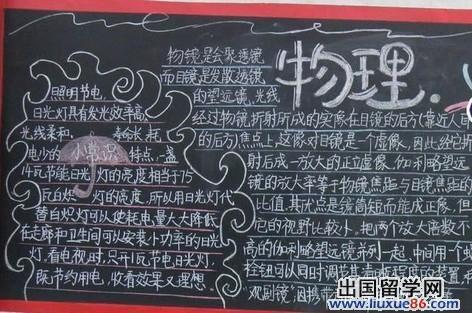 照明节电
日光灯具有发光效率高,
光线柔和, 寿命长, 耗
电少的 特点, 一盏
小常识
14瓦节能日光灯的亮度相当于75
瓦白炽灯的亮度, 所以用日光灯代
替白炽灯可以使耗电量大大降低
在走廊和卫生间可以安装小功率的日光
灯, 看电视时, 只开1瓦节电日光灯,
既节约用电, 收看效果又理想.
物理
物镜是会聚透镜
而目镜是发散透镜
的望远镜, 光线
经过物镜折射所成的实像在目镜的后方(靠近人
的后方)焦点上, 这像对目镜是一个虚像, 因此经它折
射后成一放大的正立虚像, 伽利略望远
镜的放大率等于物镜焦距与目镜焦距的
比值, 其优点是镜筒短而能成正像, 但
它的视野比较小, 把两个放大倍数不
高的伽利略望远镜并列一起, 中间用一个螺
栓钮可以同时调节其清晰程度的装置, 称
"观剧镜", 因携带
出国留学网
www.liuxue86.com